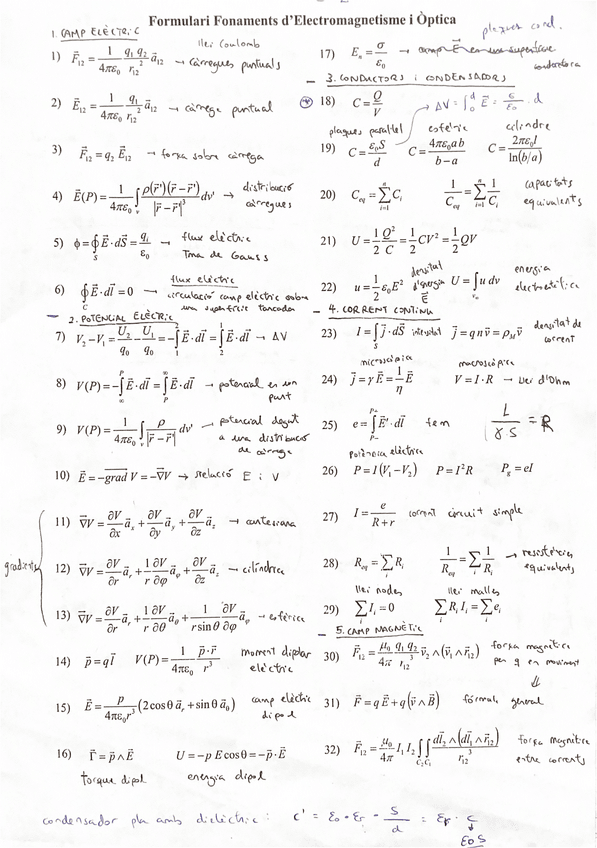 Formulari Fonaments d'Electromagnetisme i Òptica
1. CAMP ELÈCTRIC
llei Coulomb
1) F⃗₁₂ = 1/(4πε₀) q₁ q₂/r₁₂² a⃗₁₂ → càrregues puntuals
2) E⃗₁₂ = 1/(4πε₀) q₁/r₁₂² a⃗₁₂ → càrrega puntual
3) F⃗₁₂ = q₂ E⃗₁₂ → força sobre càrrega
4) E⃗(P) = 1/(4πε₀) ∫ᵥ ρ(r⃗')(r⃗ − r⃗')/|r⃗ − r⃗'|³ dv' → distribució càrregues
5) ϕ = ∮_S E⃗·dS⃗ = qᵢ/ε₀ → flux elèctric
Tma de Gauss
flux elèctric
6) ∮_C E⃗·dl⃗ = 0 → circulació camp elèctric sobre
una superfície tancada
2. POTENCIAL ELÈCTRIC
7) V₂ − V₁ = U₂/q₀ − U₁/q₀ = −∫₁² E⃗·dl⃗ = ∫₂¹ E⃗·dl⃗ → ΔV
8) V(P) = −∫_∞^P E⃗·dl⃗ = ∫_P^∞ E⃗·dl⃗ → potencial en un
punt
9) V(P) = 1/(4πε₀) ∫ᵥ ρ/|r⃗ − r⃗'| dv' → potencial degut
a una distribució
de càrrega
10) E⃗ = −grad V = −∇⃗V → relació E i V
gradients
11) ∇⃗V = ∂V/∂x a⃗ₓ + ∂V/∂y a⃗_y + ∂V/∂z a⃗_z → cartesiana
12) ∇⃗V = ∂V/∂r a⃗ᵣ + 1/r ∂V/∂φ a⃗_φ + ∂V/∂z a⃗_z → cilíndrica
13) ∇⃗V = ∂V/∂r a⃗ᵣ + 1/r ∂V/∂θ a⃗_θ + 1/(r sin θ) ∂V/∂φ a⃗_φ → esfèrica
14) p⃗ = q l⃗ V(P) = 1/(4πε₀) p⃗·r⃗/r³ moment dipolar
elèctric
15) E⃗ = p/(4πε₀r³) (2cosθ a⃗ᵣ + sinθ a⃗_θ) camp elèctric
dipol
16) Γ⃗ = p⃗ ∧ E⃗ U = −p E cosθ = −p⃗·E⃗
torque dipol energia dipol
plaques cond.
17) Eₙ = σ/ε₀ → camp E⃗ en una superfície
conductora
3. CONDUCTORS i CONDENSADORS
18) C = Q/V → ΔV = ∫₀ᵈ E⃗ = σ/ε₀ · d
plaques paral·lel esfèric cilindre
19) C = ε₀S/d C = 4πε₀ab/(b − a) C = 2πε₀l/ln(b/a)
20) C_eq = Σᵢ₌₁ⁿ Cᵢ 1/C_eq = Σᵢ₌₁ⁿ 1/Cᵢ capacitats
equivalents
21) U = 1/2 Q²/C = 1/2 CV² = 1/2 QV
22) u = 1/2 ε₀E² densitat d'energia E⃗ U = ∫ u dv energia
electrostàtica
4. CORRENT CONTINU
23) I = ∫_S j⃗·dS⃗ intensitat j⃗ = q n v⃗ = ρ_M v⃗ densitat de
corrent
microscòpica macroscòpica
24) j⃗ = γ E⃗ = 1/η E⃗ V = I·R → llei d'Ohm
25) e = ∫_{P−}^{P+} E⃗'·dl⃗ fem L/(γ·S) = R
potència elèctrica
26) P = I(V₁ − V₂) P = I²R P_g = eI
27) I = e/(R + r) corrent circuit simple
28) R_eq = Σᵢ Rᵢ 1/R_eq = Σᵢ 1/Rᵢ → resistències
equivalents
llei nodes llei malles
29) Σᵢ Iᵢ = 0 Σᵢ Rᵢ Iᵢ = Σᵢ eᵢ
5. CAMP MAGNÈTIC
30) F⃗₁₂ = μ₀/4π q₁ q₂/r₁₂³ v⃗₂ ∧ (v⃗₁ ∧ r⃗₁₂) força magnètica
per q en moviment
⇓
31) F⃗ = q E⃗ + q(v⃗ ∧ B⃗) fórmula general
32) F⃗₁₂ = μ₀/4π I₁ I₂ ∫_C₂ ∫_C₁ dl⃗₂ ∧ (dl⃗₁ ∧ r⃗₁₂)/r₁₂³ força magnètica
entre corrents
condensador pla amb dielèctric: C' = ε₀ · εᵣ · S/d = εᵣ · C
ε₀ S